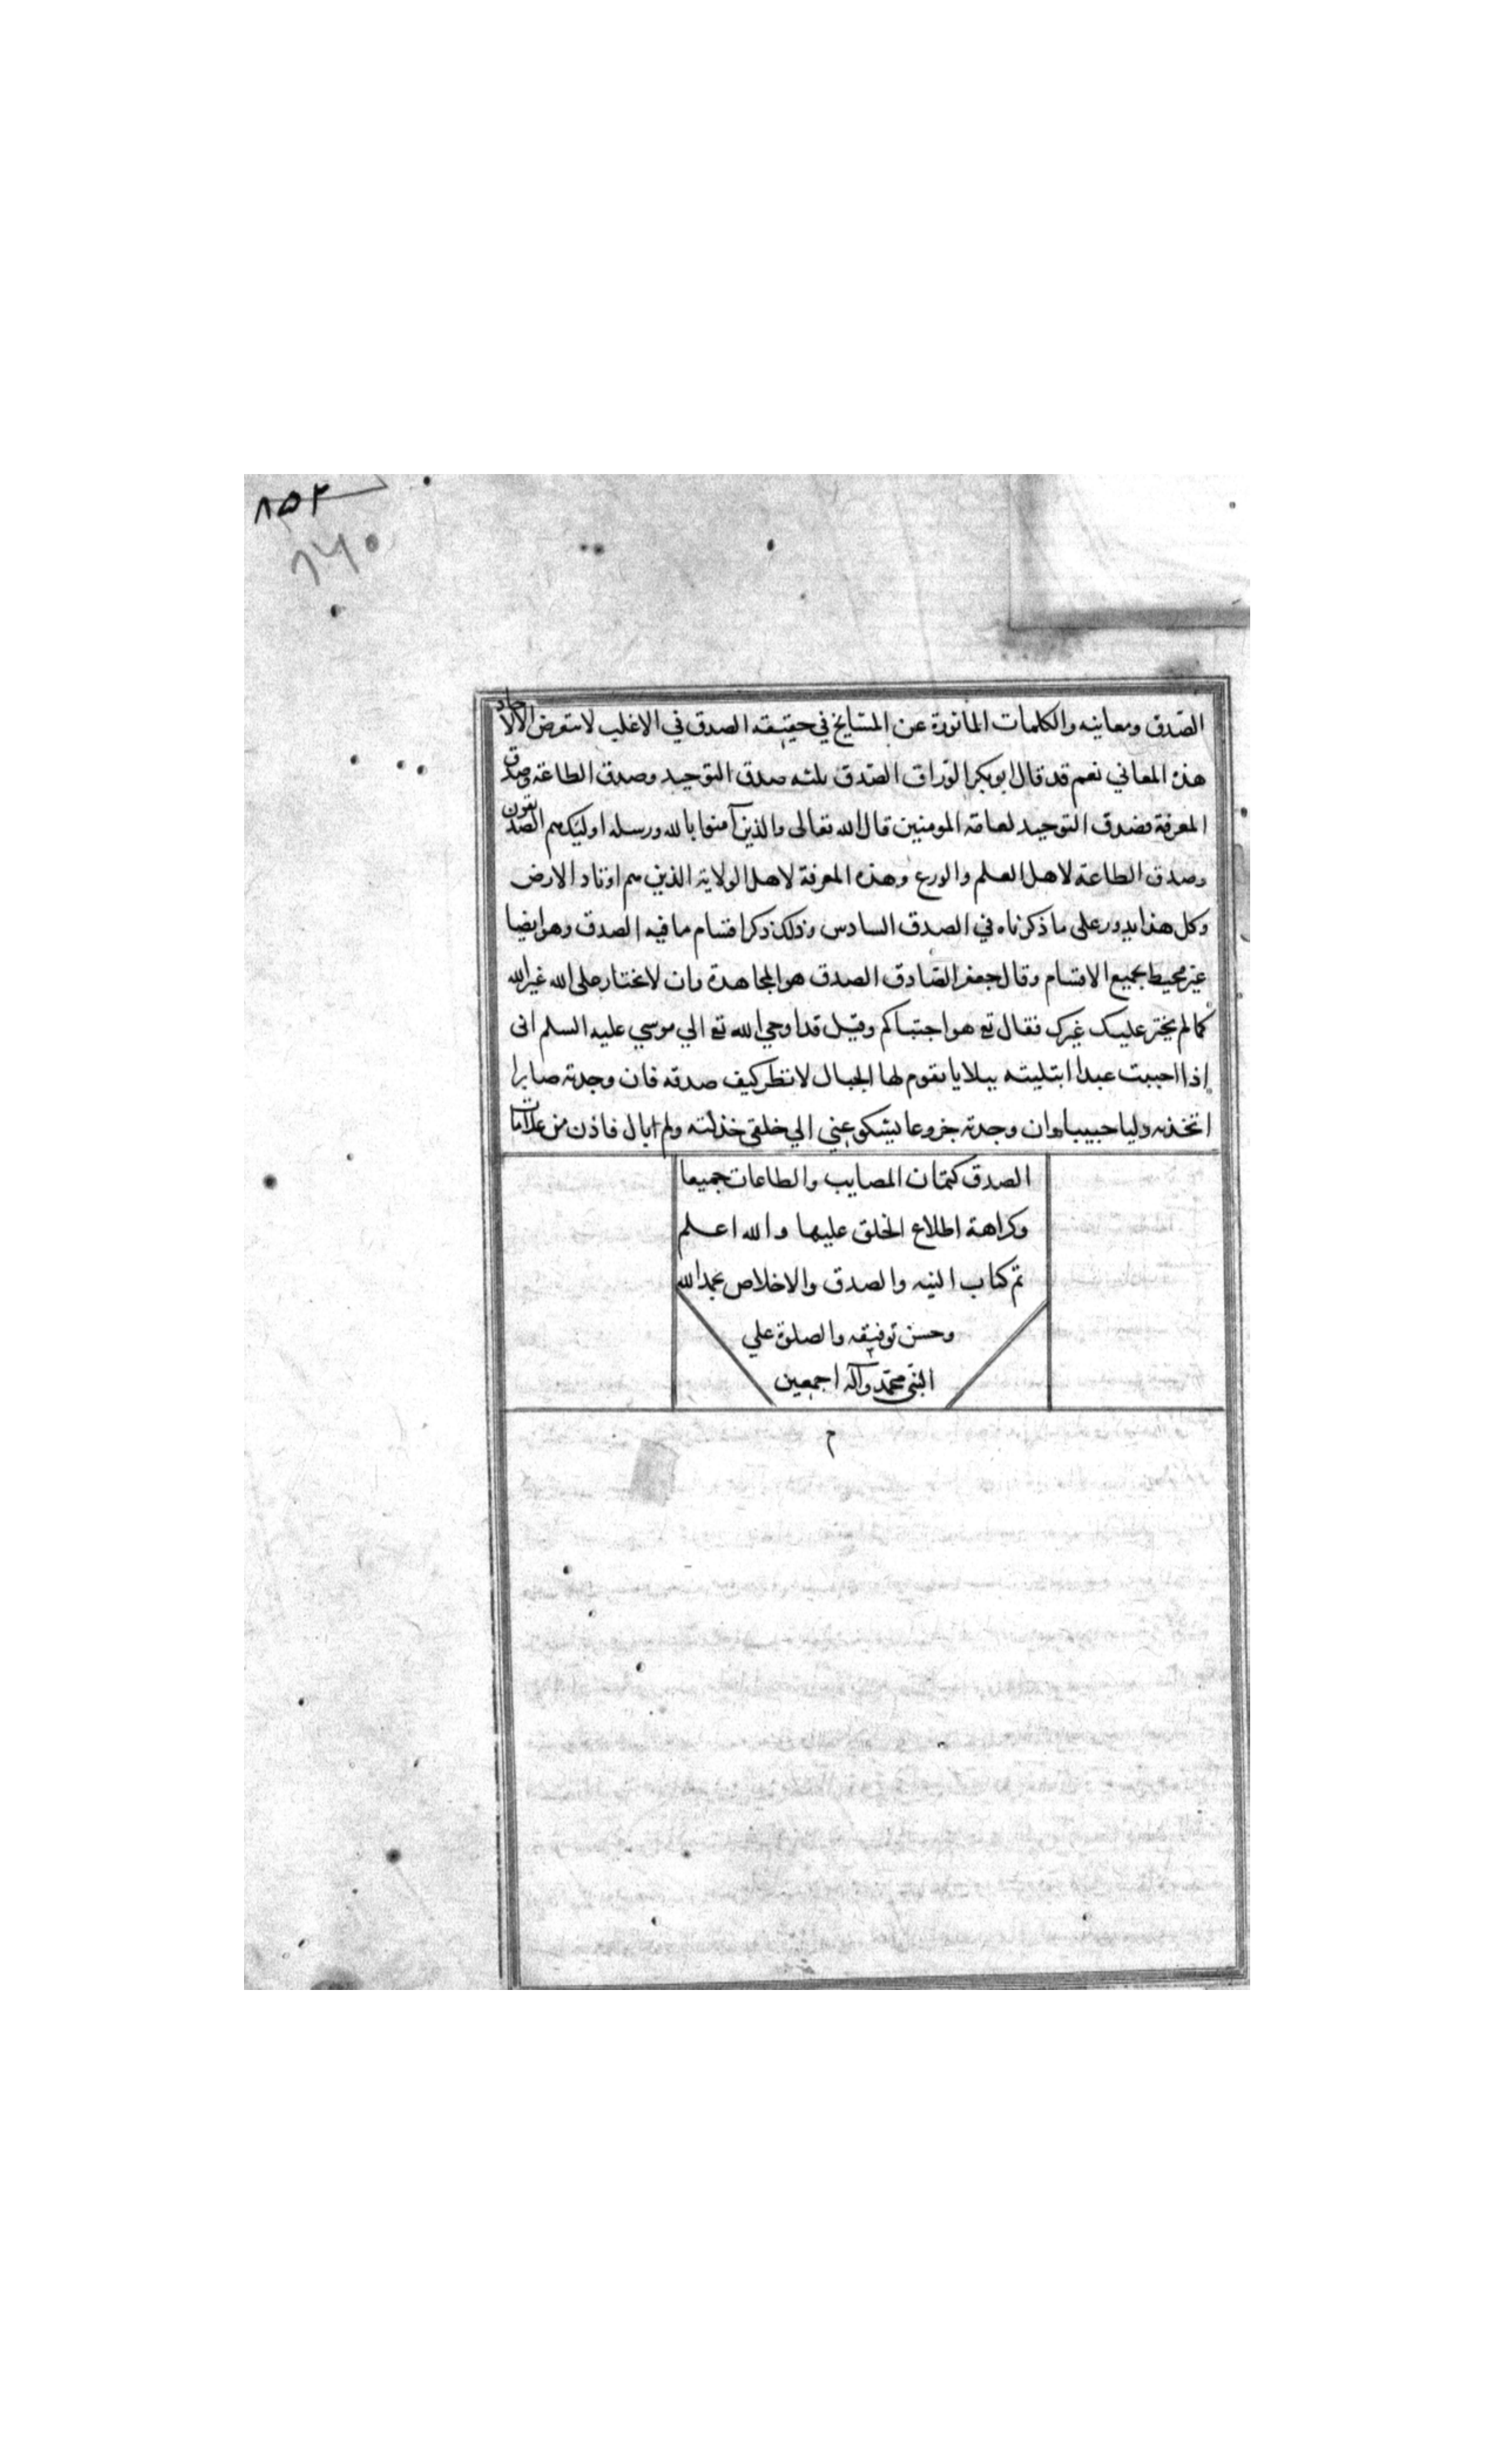 ٨٥٢
٨٦٠
الصدق ومعانيه والكلمات الماثورة عن المشايخ في حقيقة الصدق في الاغلب لا تتعرض الا لاحاد
هذه المعاني نعم قد قال ابو بكر الوراق الصدق ثلثه صدق التوحيد وصدق الطاعة وصدق
المعرفة فصدق التوحيد لعامة المومنين قال الله تعالى والذين آمنوا بالله ورسله اوليك هم الصديقون
وصدق الطاعة لاهل العلم والورع وهذه المعرفة لاهل الولاية الذين هم اوتاد الارض
وكل هذا يدور على ما ذكرناه في الصدق السادس وذلك ذكر اقسام ما فيه الصدق وهو ايضا
غير محيط بجميع الاقسام وقال جعفر الصادق الصدق هو المجاهدة وان لا تختار على الله غير الله
كما لم يختر عليك غيرك فقال تع هو اجتباكم وقيل قد اوحي الله تع الي موسي عليه السلم انى
اذا احببت عبدا ابتليته ببلايا تقوم لها الجبال لا نظر كيف صدقه فان وجدته صابرا
اتخذته وليا حبيبا وان وجدته جزوعا يشكو عني الي خلقي خذلته ولم ابال فاذن من علامات
الصدق كتمان المصايب والطاعات جميعا
وكراهة اطلاع الخلق عليها والله اعلم
تم كتاب النيه والصدق والاخلاص بحمد الله
وحسن توفيقه والصلوة علي
النبى محمد وآله اجمعين
م